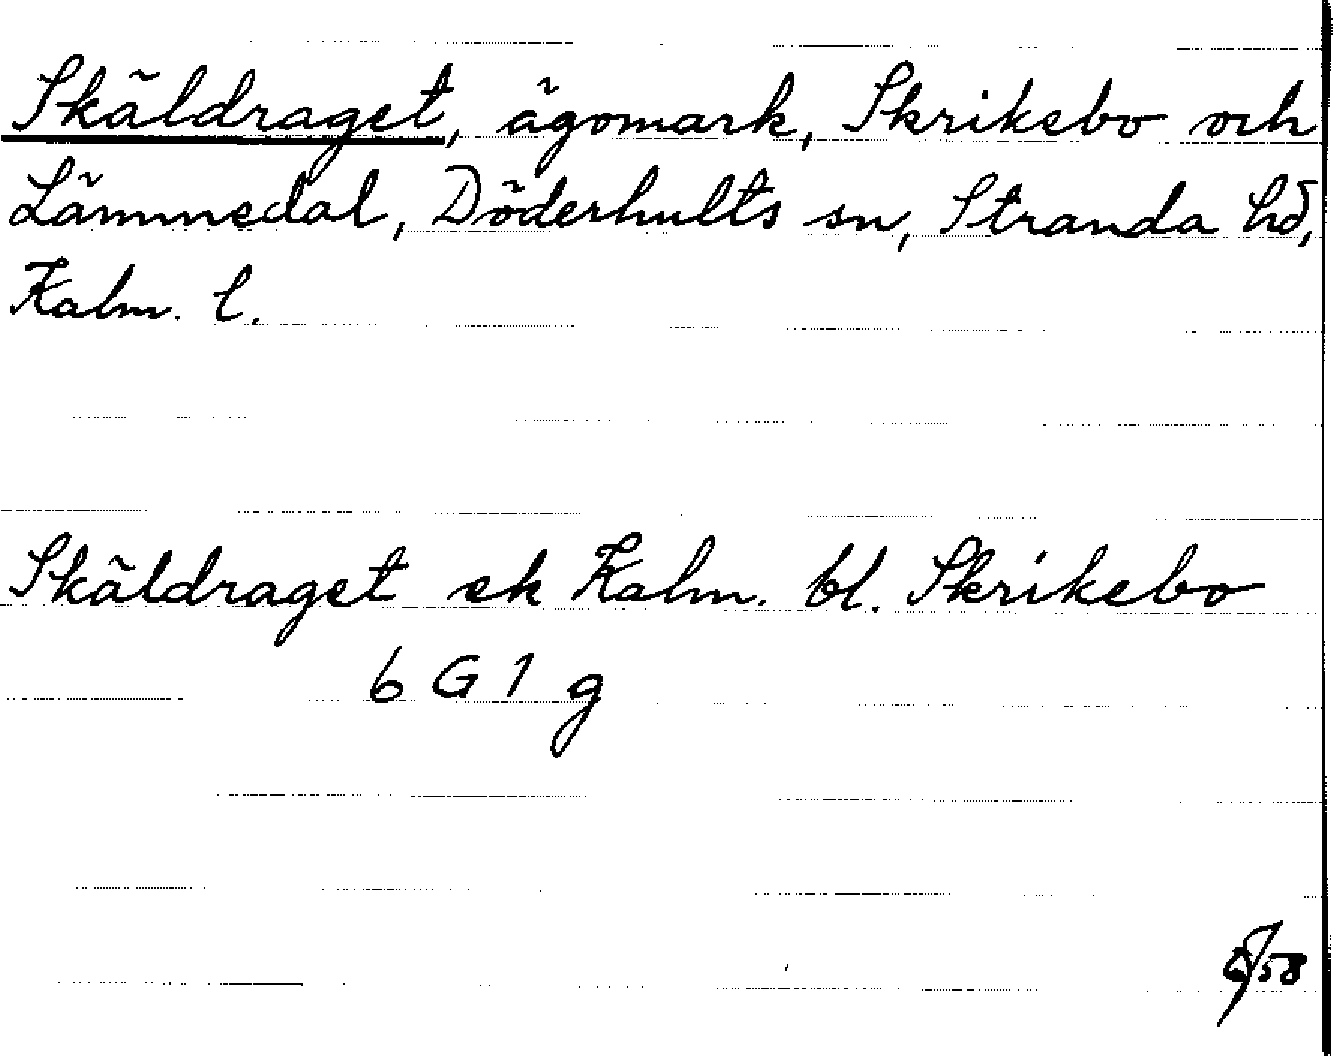 Skäldraget, ägomark, Skrikebo och
Lämmedal, Döderhults sn, Stranda hd,
Kalm. l.
Skäldraget ek Kalm. bl. Skrikebo
6 G 1 g